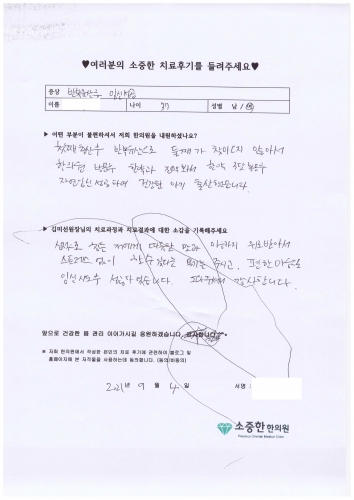 ♥여러분의 소중한 치료후기를 들려주세요♥
증상 반복유산후 임신성공
이름 나이 37 성별 남 / 여
▶ 어떤 부분이 불편하셔서 저희 한의원을 내원하셨나요?
첫째 출산후 반복유산으로 둘째가 찾아오지 않아서
한의원 방문후 한약과
자연임신 성공하여 건강한 아기 출산하였습니다.
▶ 김미선원장님의 치료과정과 치료결과에 대한 소감을 기록해주세요
심적으로 힘든 저에게 따뜻한 말과 위로받아서
스트레스 없이 할수있다는 용기를 주시고, 편한마음으로
임신시도후 성공하였습니다. 감사합니다.
앞으로 건강한 몸 관리 이어가시길 응원하겠습니다. 감사합니다^^
※ 저희 한의원에서 작성한 본인의 치료 후기에 관련하여 블로그 및
홈페이지에 본 저작물을 사용하는데 동의합니다. (동의/비동의)
2021년 9 월 4 일 서명 :
소중한한의원
Precious Oriental Medical Clinic